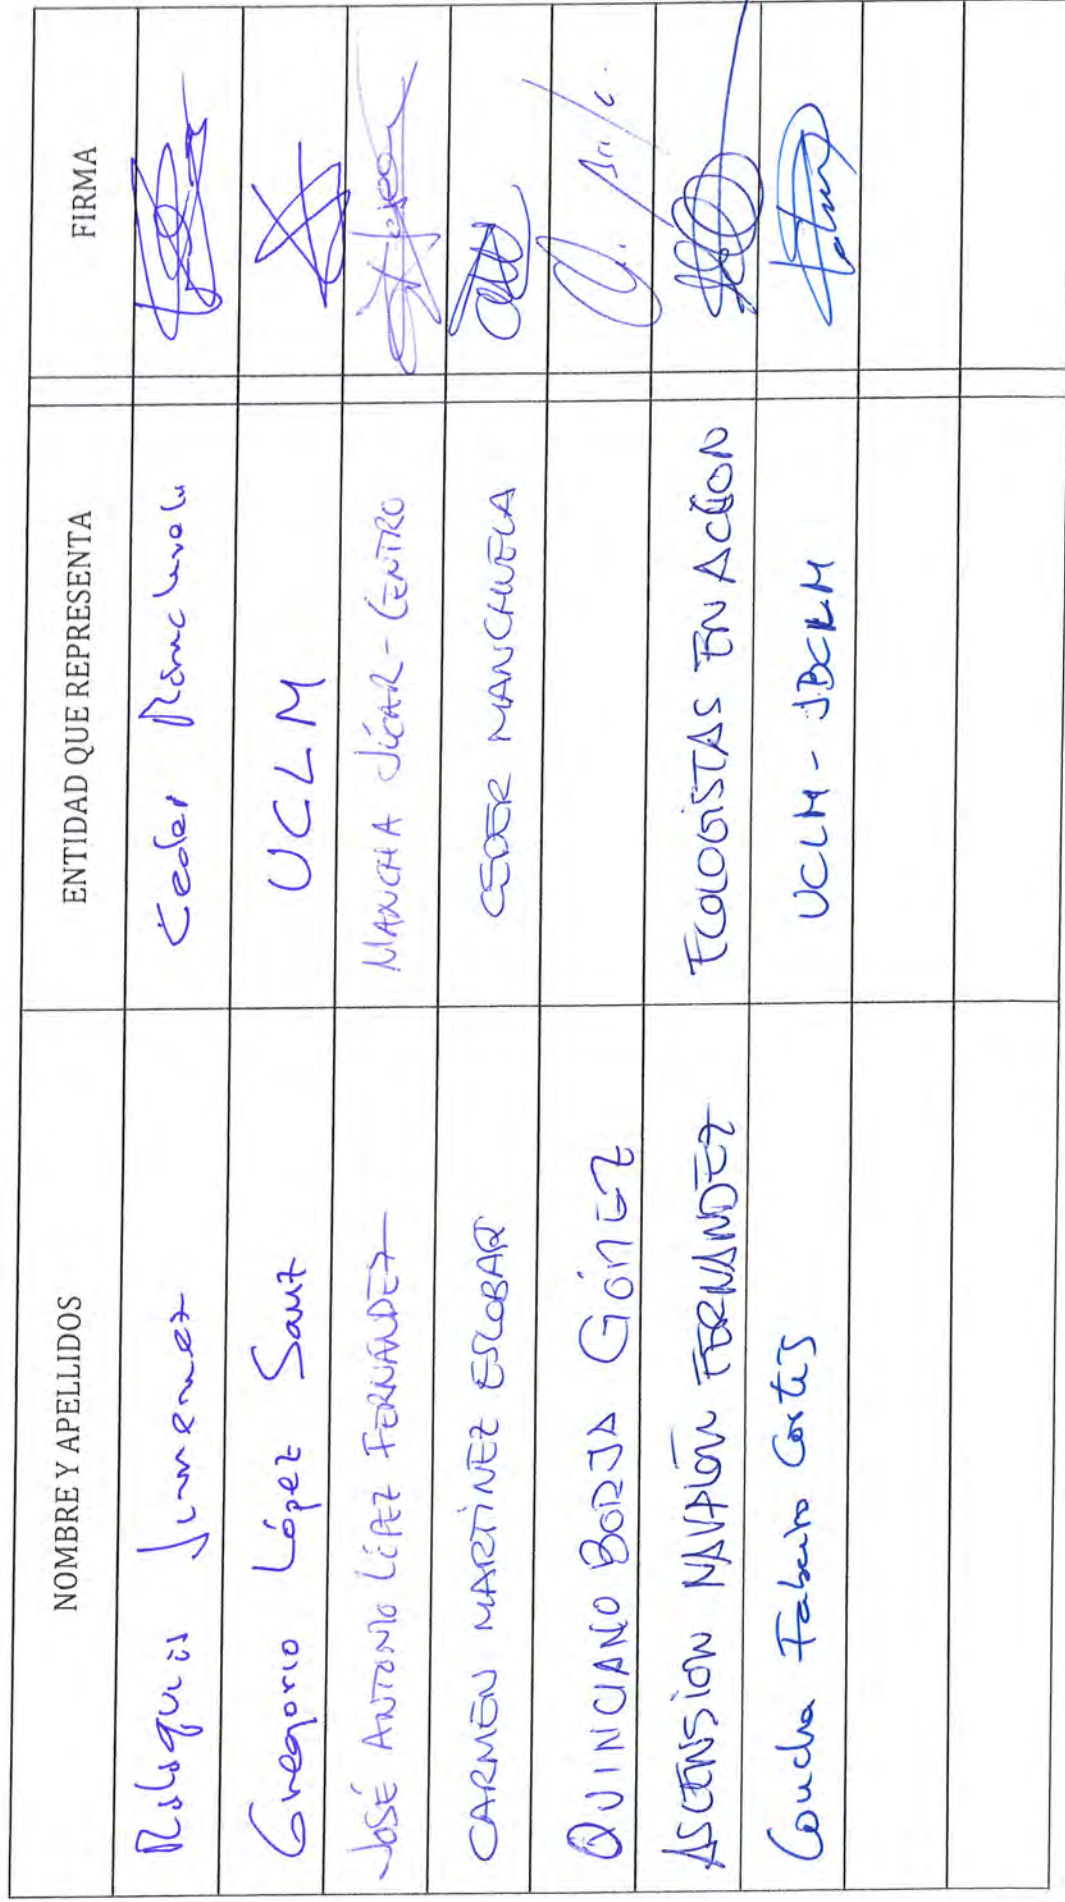 NOMBRE Y APELLIDOS ENTIDAD QUE REPRESENTA FIRMA
Jimenez Ceder Manchuela
Gregorio López Sanz UCLM
JOSÉ ANTONIO LÓPEZ FERNÁNDEZ MANCHA JÚCAR-CENTRO
CARMEN MARTÍNEZ ESCOBAR CEDER MANCHUELA
QUINCIANO BORJA GÓMEZ
ASCENSION NAVALÓN FERNANDEZ ECOLOGISTAS EN ACCION
Concha Fabeiro Cortés UCLM - JBCLM